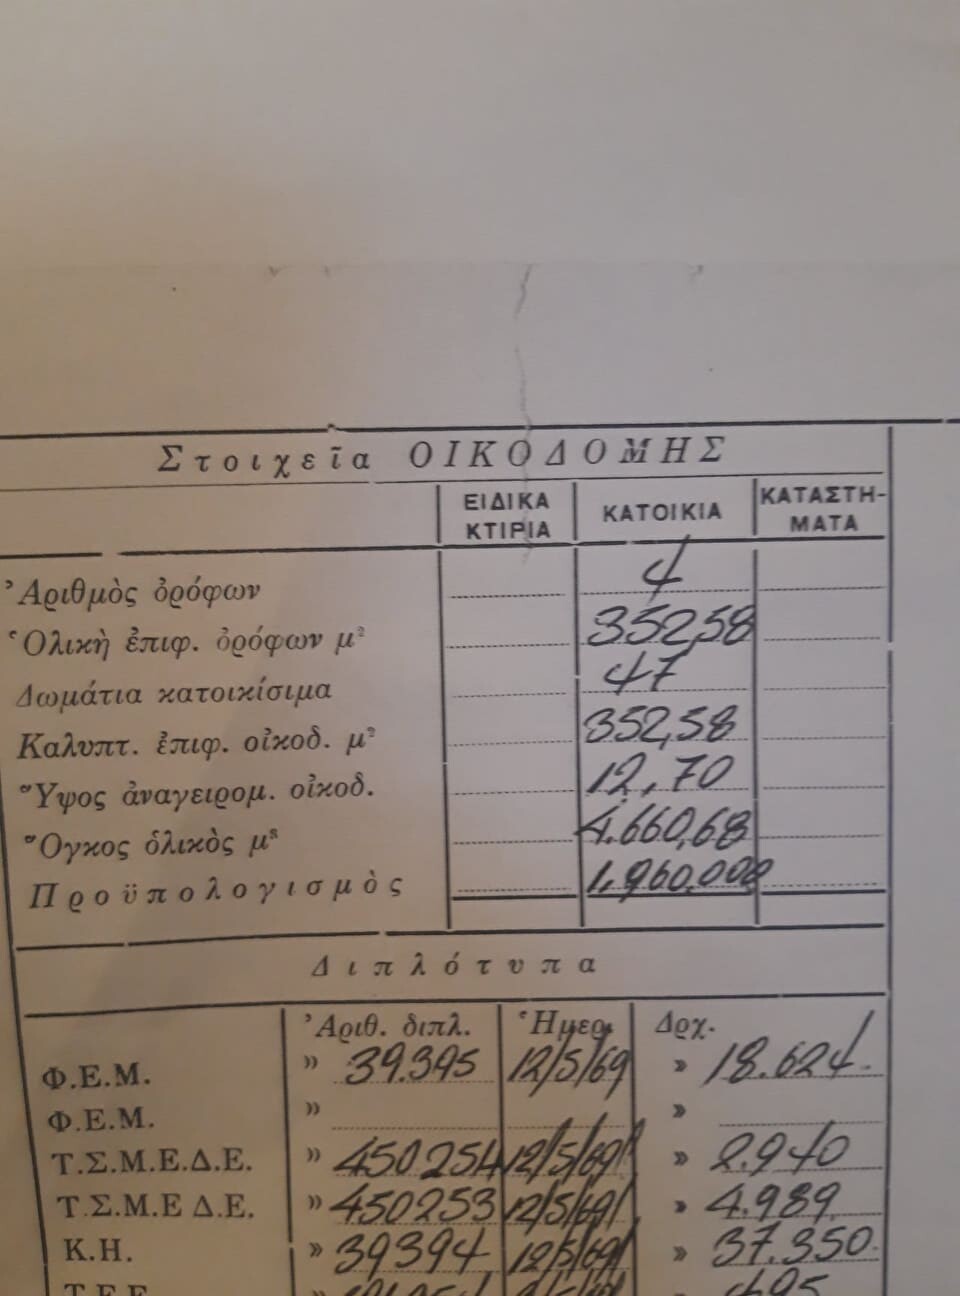 Στοιχεῖα ΟΙΚΟΔΟΜΗΣ
ΕΙΔΙΚΑ ΚΤΙΡΙΑ ΚΑΤΟΙΚΙΑ ΚΑΤΑΣΤΗ-ΜΑΤΑ
Ἀριθμὸς ὀρόφων 4
Ὁλικὴ ἐπιφ. ὀρόφων μ² 352,58
Δωμάτια κατοικίσιμα 47
Καλυπτ. ἐπιφ. οἰκοδ. μ² 352,58
Ὕψος ἀναγειρομ. οἰκοδ. 12,70
Ὄγκος ὁλικὸς μ³ 4.660,68
Προϋπολογισμὸς 1.960.000
Διπλότυπα
Ἀριθ. διπλ. Ἡμερ. Δρχ.
Φ.Ε.Μ. » 39.395 12/5/69 » 18.624.
Φ.Ε.Μ. » »
Τ.Σ.Μ.Ε.Δ.Ε. » 450254 12/5/69 » 2.940
Τ.Σ.Μ.Ε Δ.Ε. » 450253 12/5/69 » 4.989
Κ.Η. » 39394 12/5/69 » 37.350.
Τ.Ε.Ε.